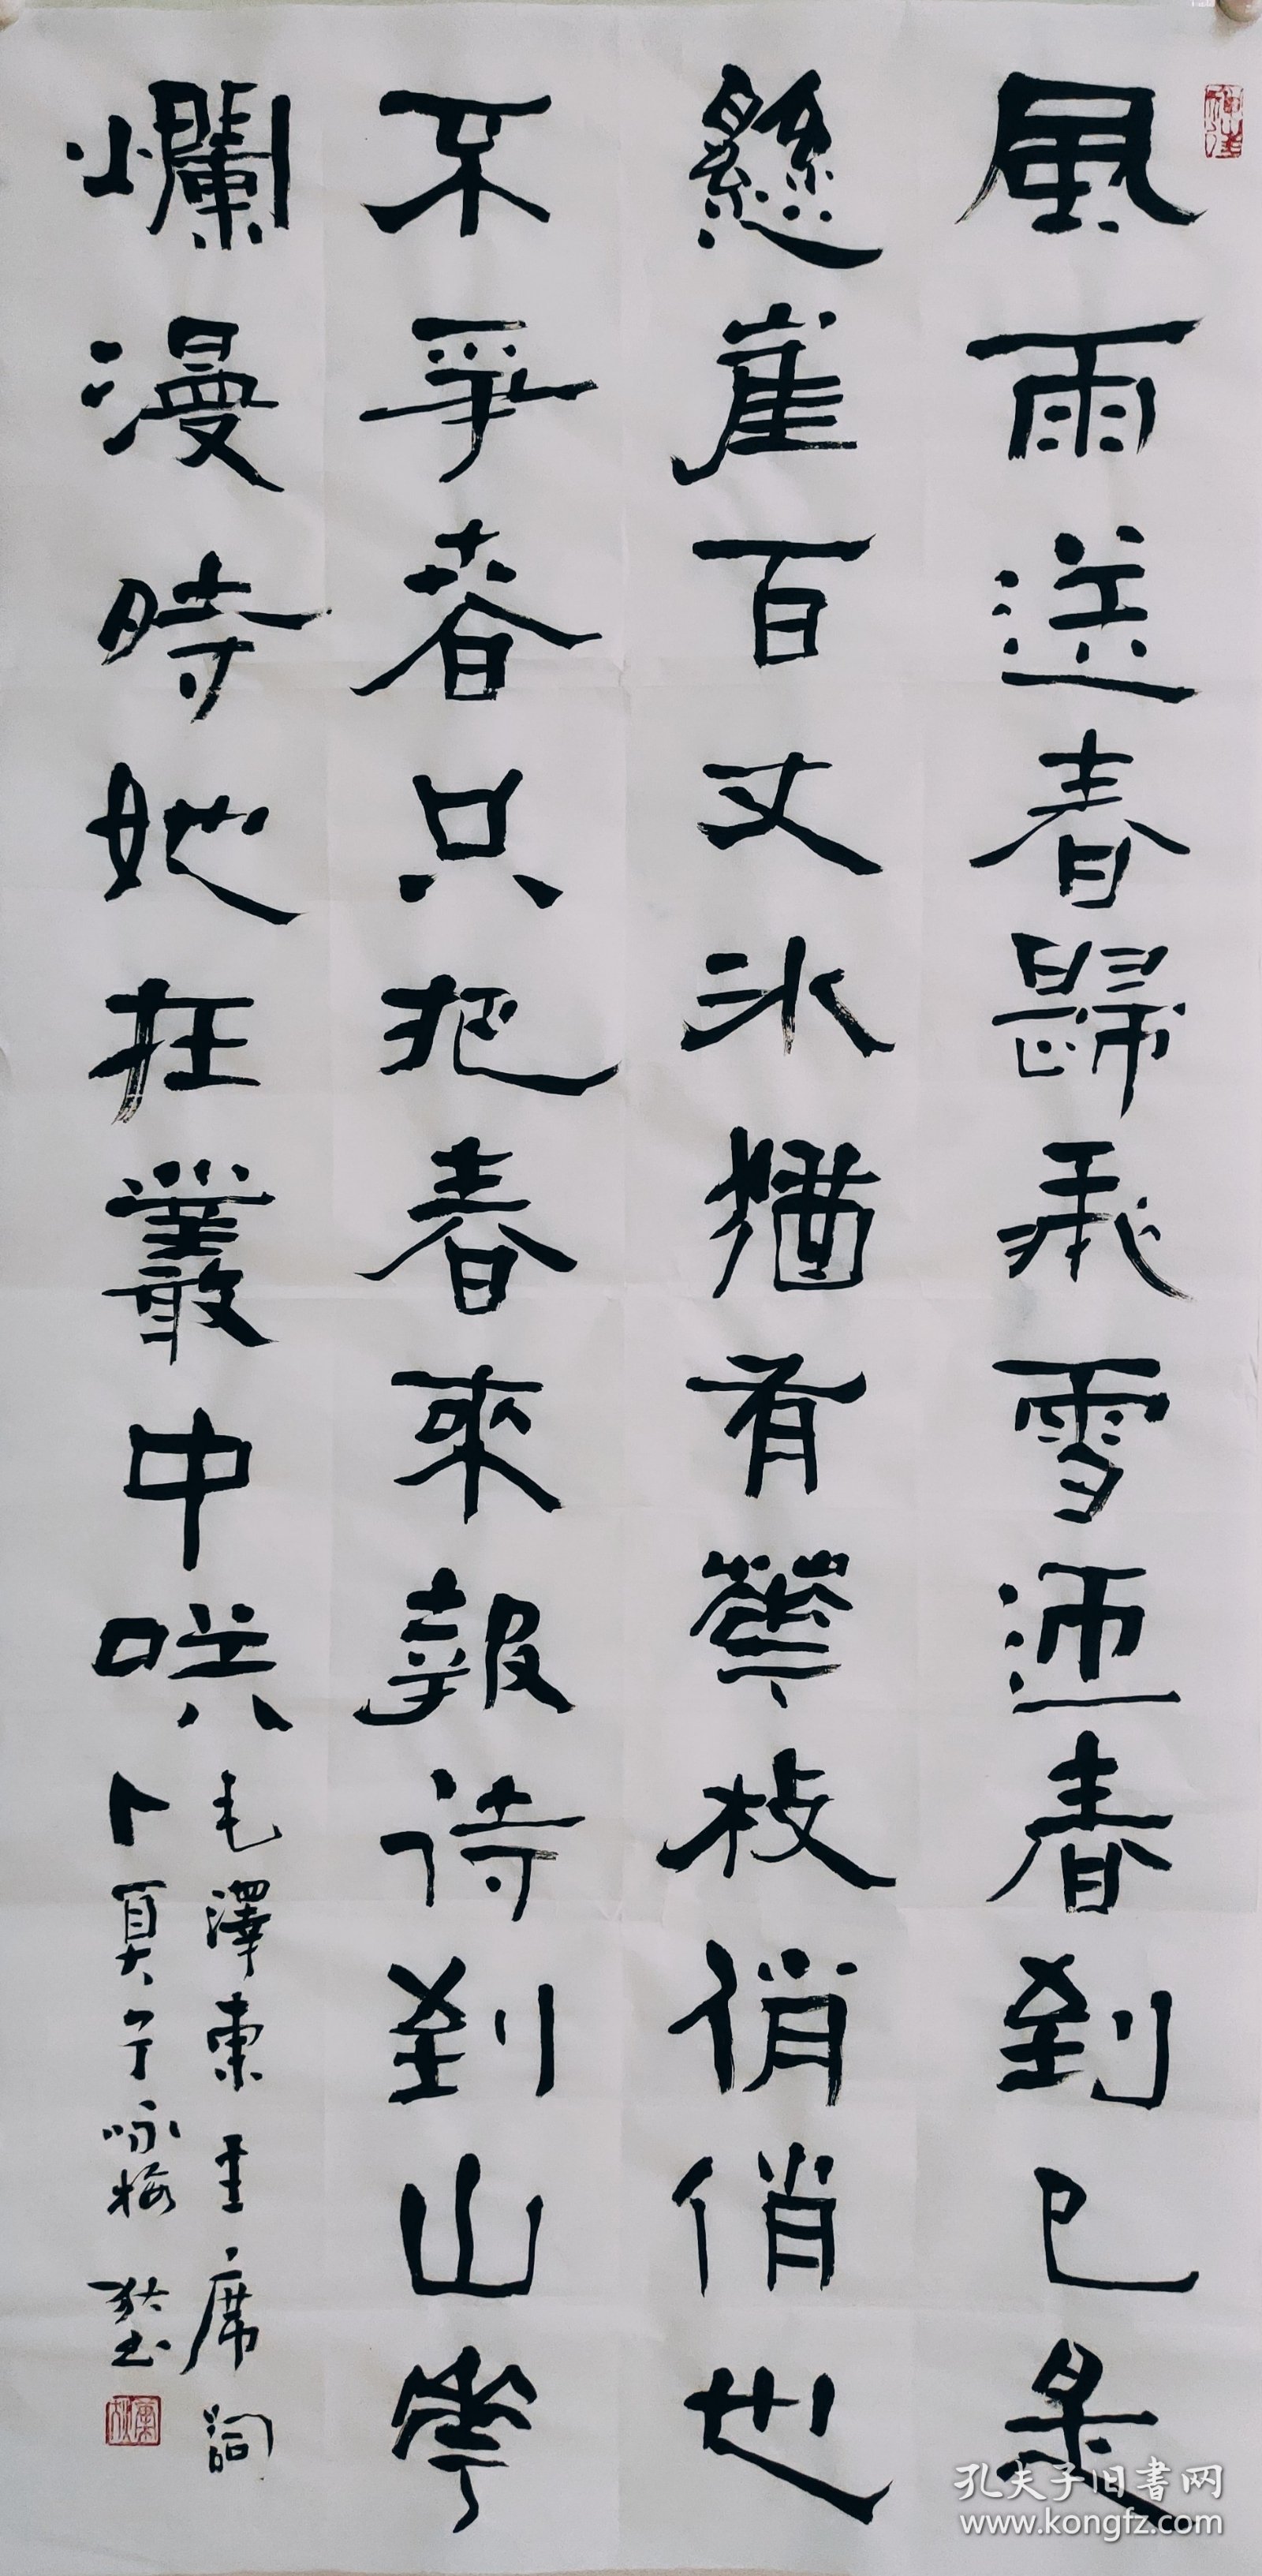 風雨送春歸飛雪迎春到已是
懸崖百丈冰猶有華枝俏俏也
不爭春只把春來報待到山華
爛漫時她在叢中咲
毛澤東主席詞
卜算子咏梅
孔夫子旧書网
www.kongfz.com